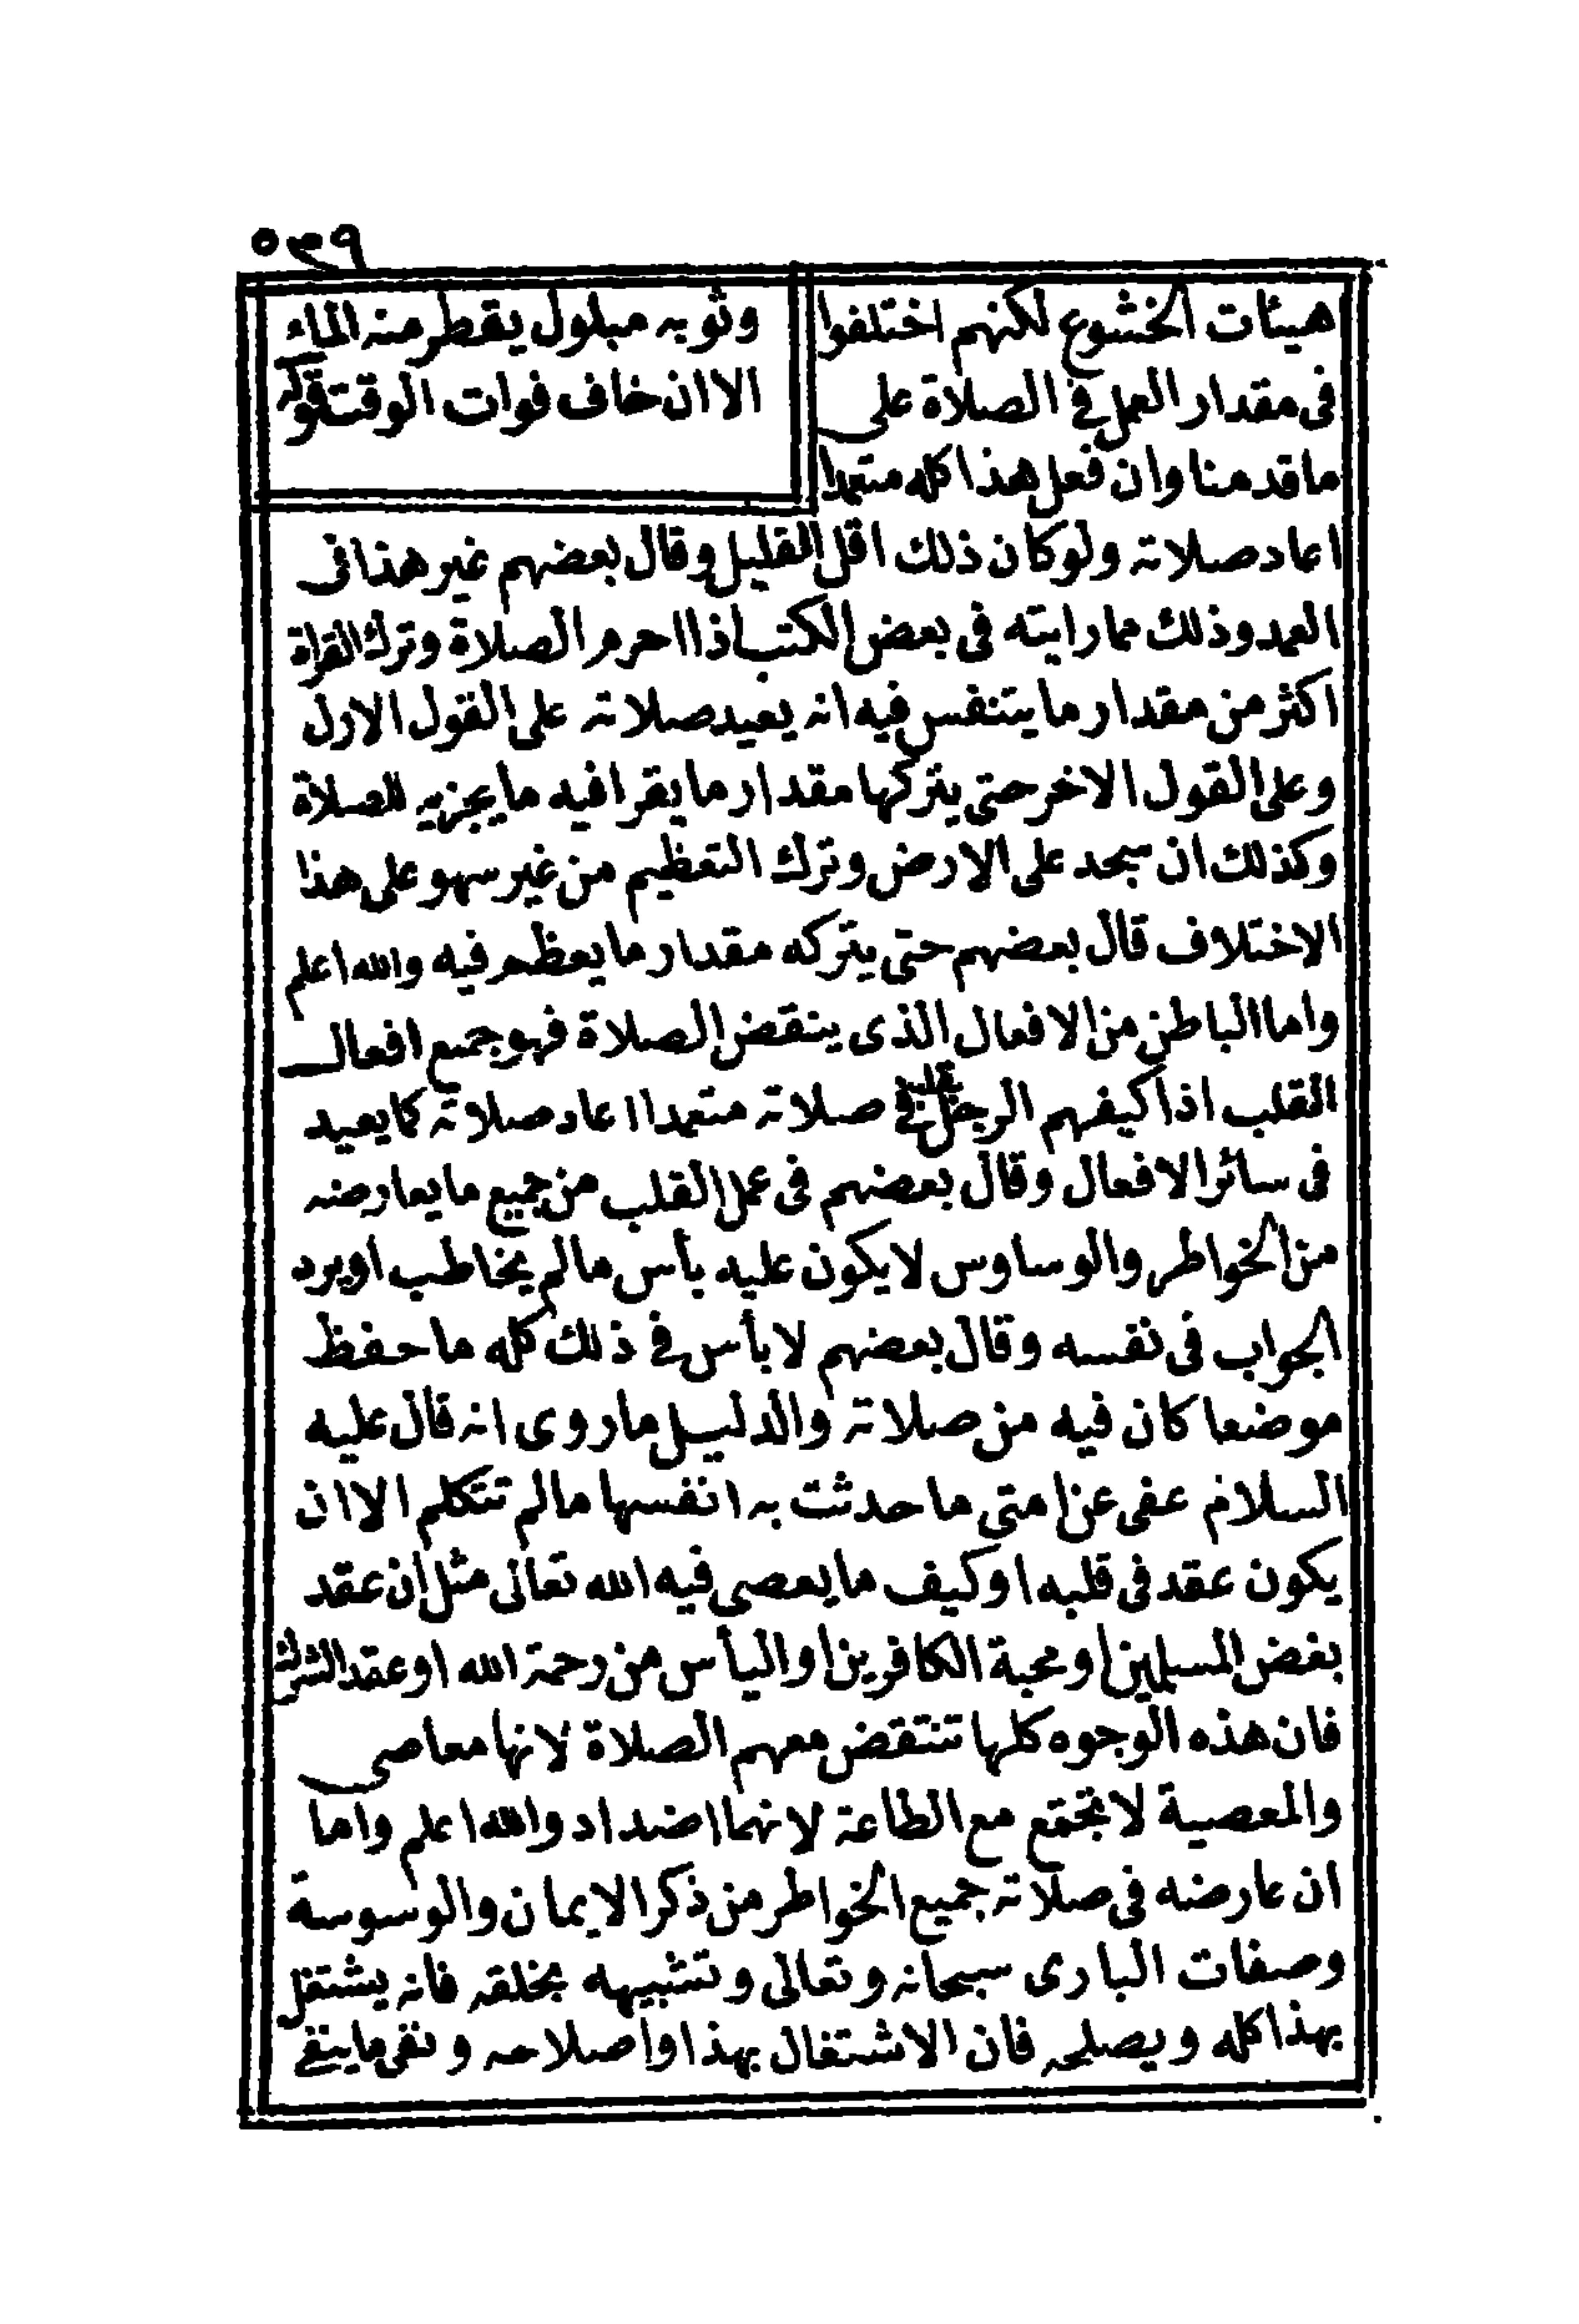 ٥٣٩
هيئات الخشوع لكنهم اختلفوا
فى مقدار العمل فى الصلاة على
ما قدمنا وان فعل هذا كله متعمدا
وثوبه مبلول يقطر منه الماء
الا ان خاف فوات الوقت قوله
اعاد صلاته ولو كان ذلك اقل القليل وقال بعضهم غير هذا فى
العمد وذلك مما رايته فى بعض الكتب اذا احرم الصلاة وترك القراة
اكثر من مقدار ما يتنفس فيه انه يعيد صلاته على القول الاول
وعلى القول الاخر حتى يتركها مقدار ما يقرا فيه ما يجزيه للصلاة
وكذلك ان سجد على الارض وترك التعظيم من غير سهو على هذا
الاختلاف قال بعضهم حتى يتركه مقدار ما يعظم فيه والله اعلم
واما الباطن من الافعال الذى ينقض الصلاة فهو جميع افعال
القلب اذا كيفهم الرجل فى صلاته متعمدا اعاد صلاته كما يعيد
فى سائر الافعال وقال بعضهم فى عمل القلب من جميع ما يعارضه
من الخواطر والوساوس لا يكون عليه بأس ما لم يخاطب او يرد
الجواب فى نفسه وقال بعضهم لا بأس فى ذلك كله ما حفظ
موضعا كان فيه من صلاته والدليل ما روى انه قال عليه
السلام عفى عن امتى ما حدثت به انفسها ما لم تتكلم الا ان
يكون عقد فى قلبه او كيف ما يعصى فيه الله تعالى مثل ان عقد
بغض المسلمين او محبة الكافرين او اليأس من رحمة الله او عقد الشرك
فان هذه الوجوه كلها تنتقض معهم الصلاة لانها معاصى
والمعصية لا تجتمع مع الطاعة لانهما اضداد والله اعلم واما
ان عارضه فى صلاته جميع الخواطر من ذكر الايمان والوسوسة
وصفات البارى سبحانه وتعالى وتشبيهه بخلقه فانه يشتغل
بهذا كله ويصلحه فان الاشتغال بهذا واصلاحه ونفى ما ينبغى